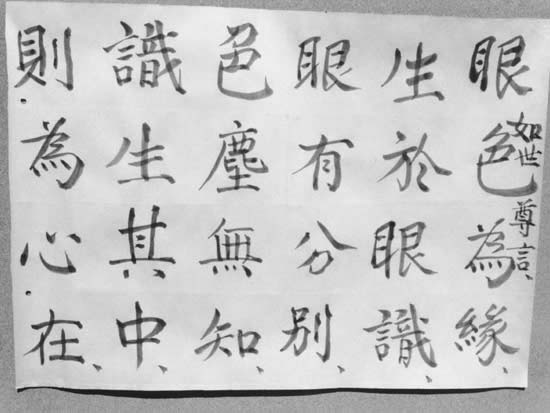 如世尊言、
眼色為緣、
生於眼識、
眼有分別、
色塵無知、
識生其中、
則為心在、